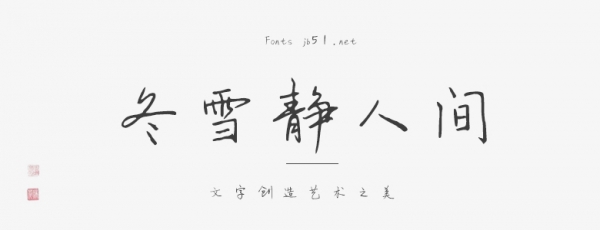 Fonts jb51.net
冬雪静人间
文字创造艺术之美